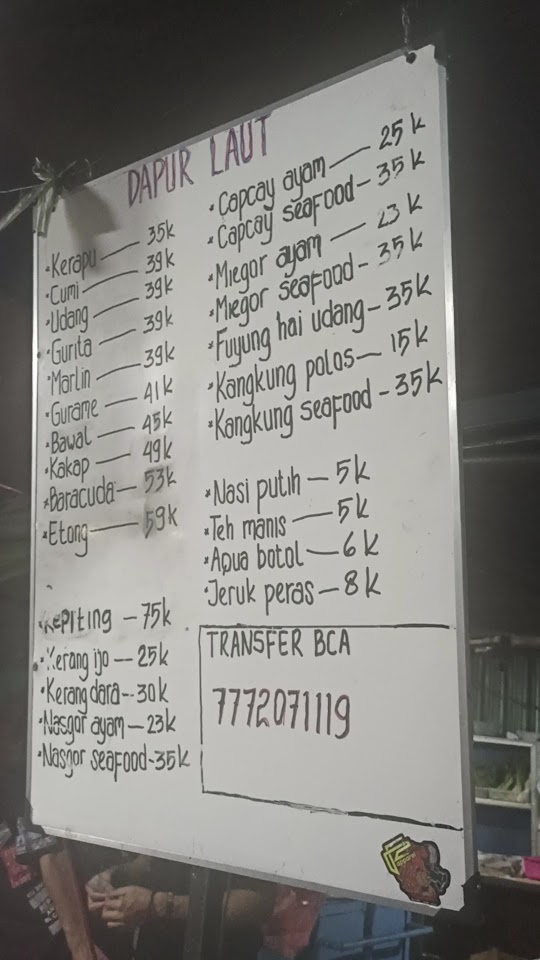 DAPUR LAUT
Kerapu — 35k
Cumi — 39k
Udang — 39k
Gurita — 39k
Marlin — 39k
Gurame — 41k
Bawal — 45k
Kakap — 49k
Baracuda — 53k
Etong — 59k
Kepiting — 75k
Kerang ijo — 25k
Kerang dara - 30k
Nasgor ayam — 23k
Nasgor seafood - 35k
Capcay ayam — 25k
Capcay seafood - 35k
Miegor ayam — 23k
Miegor seafood - 35k
Fuyung hai udang - 35k
Kangkung polos — 15k
Kangkung seafood - 35k
Nasi putih — 5k
Teh manis — 5k
Aqua botol — 6k
Jeruk peras — 8k
TRANSFER BCA
7772071119